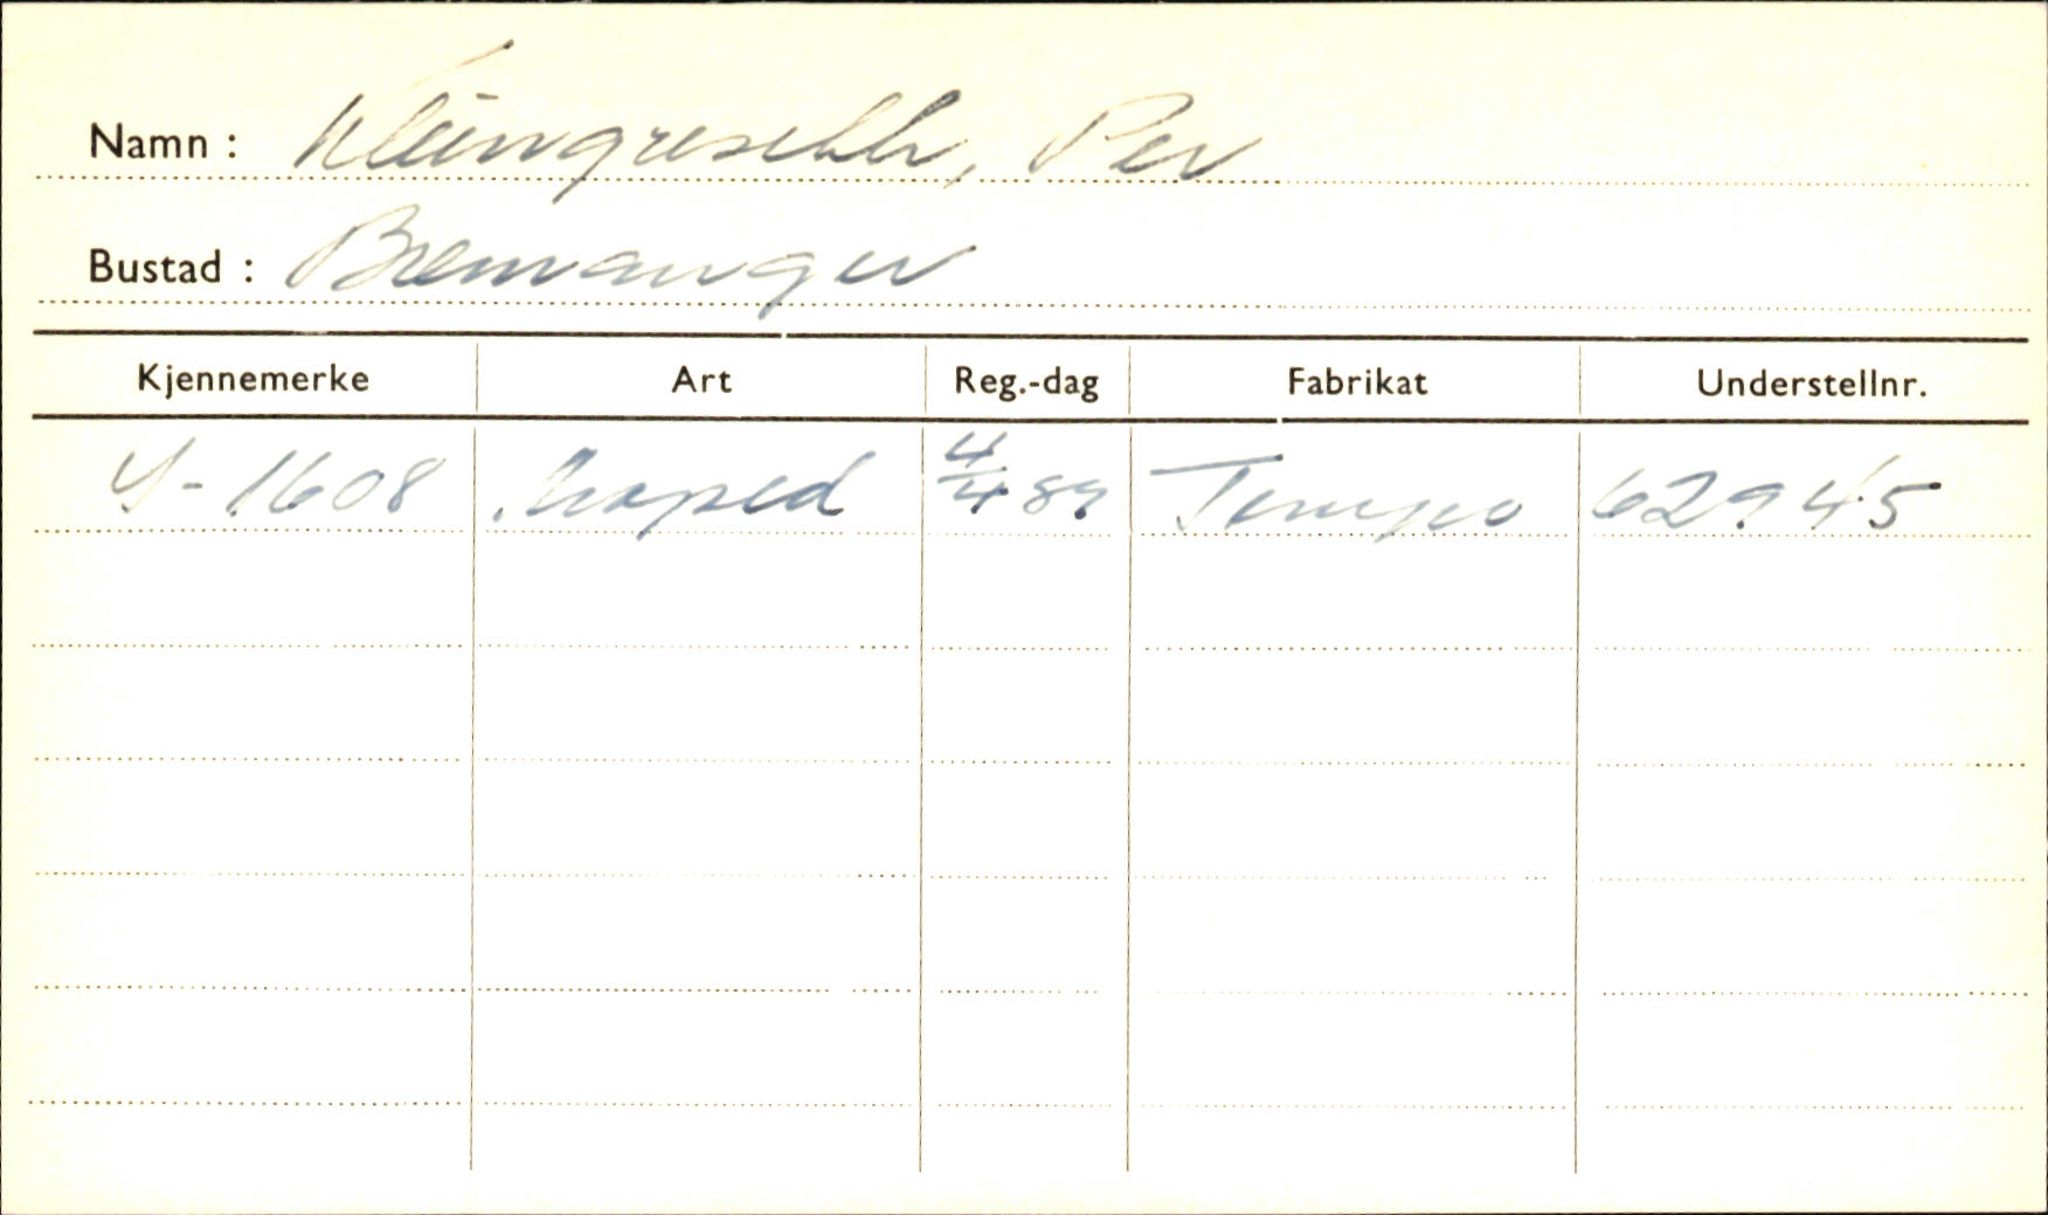 Namn : Per
Bustad : Bremanger
Kjennemerke Art Reg.-dag Fabrikat Understellnr.
Y-1608 Moped 4/4 89 Tempo 62945